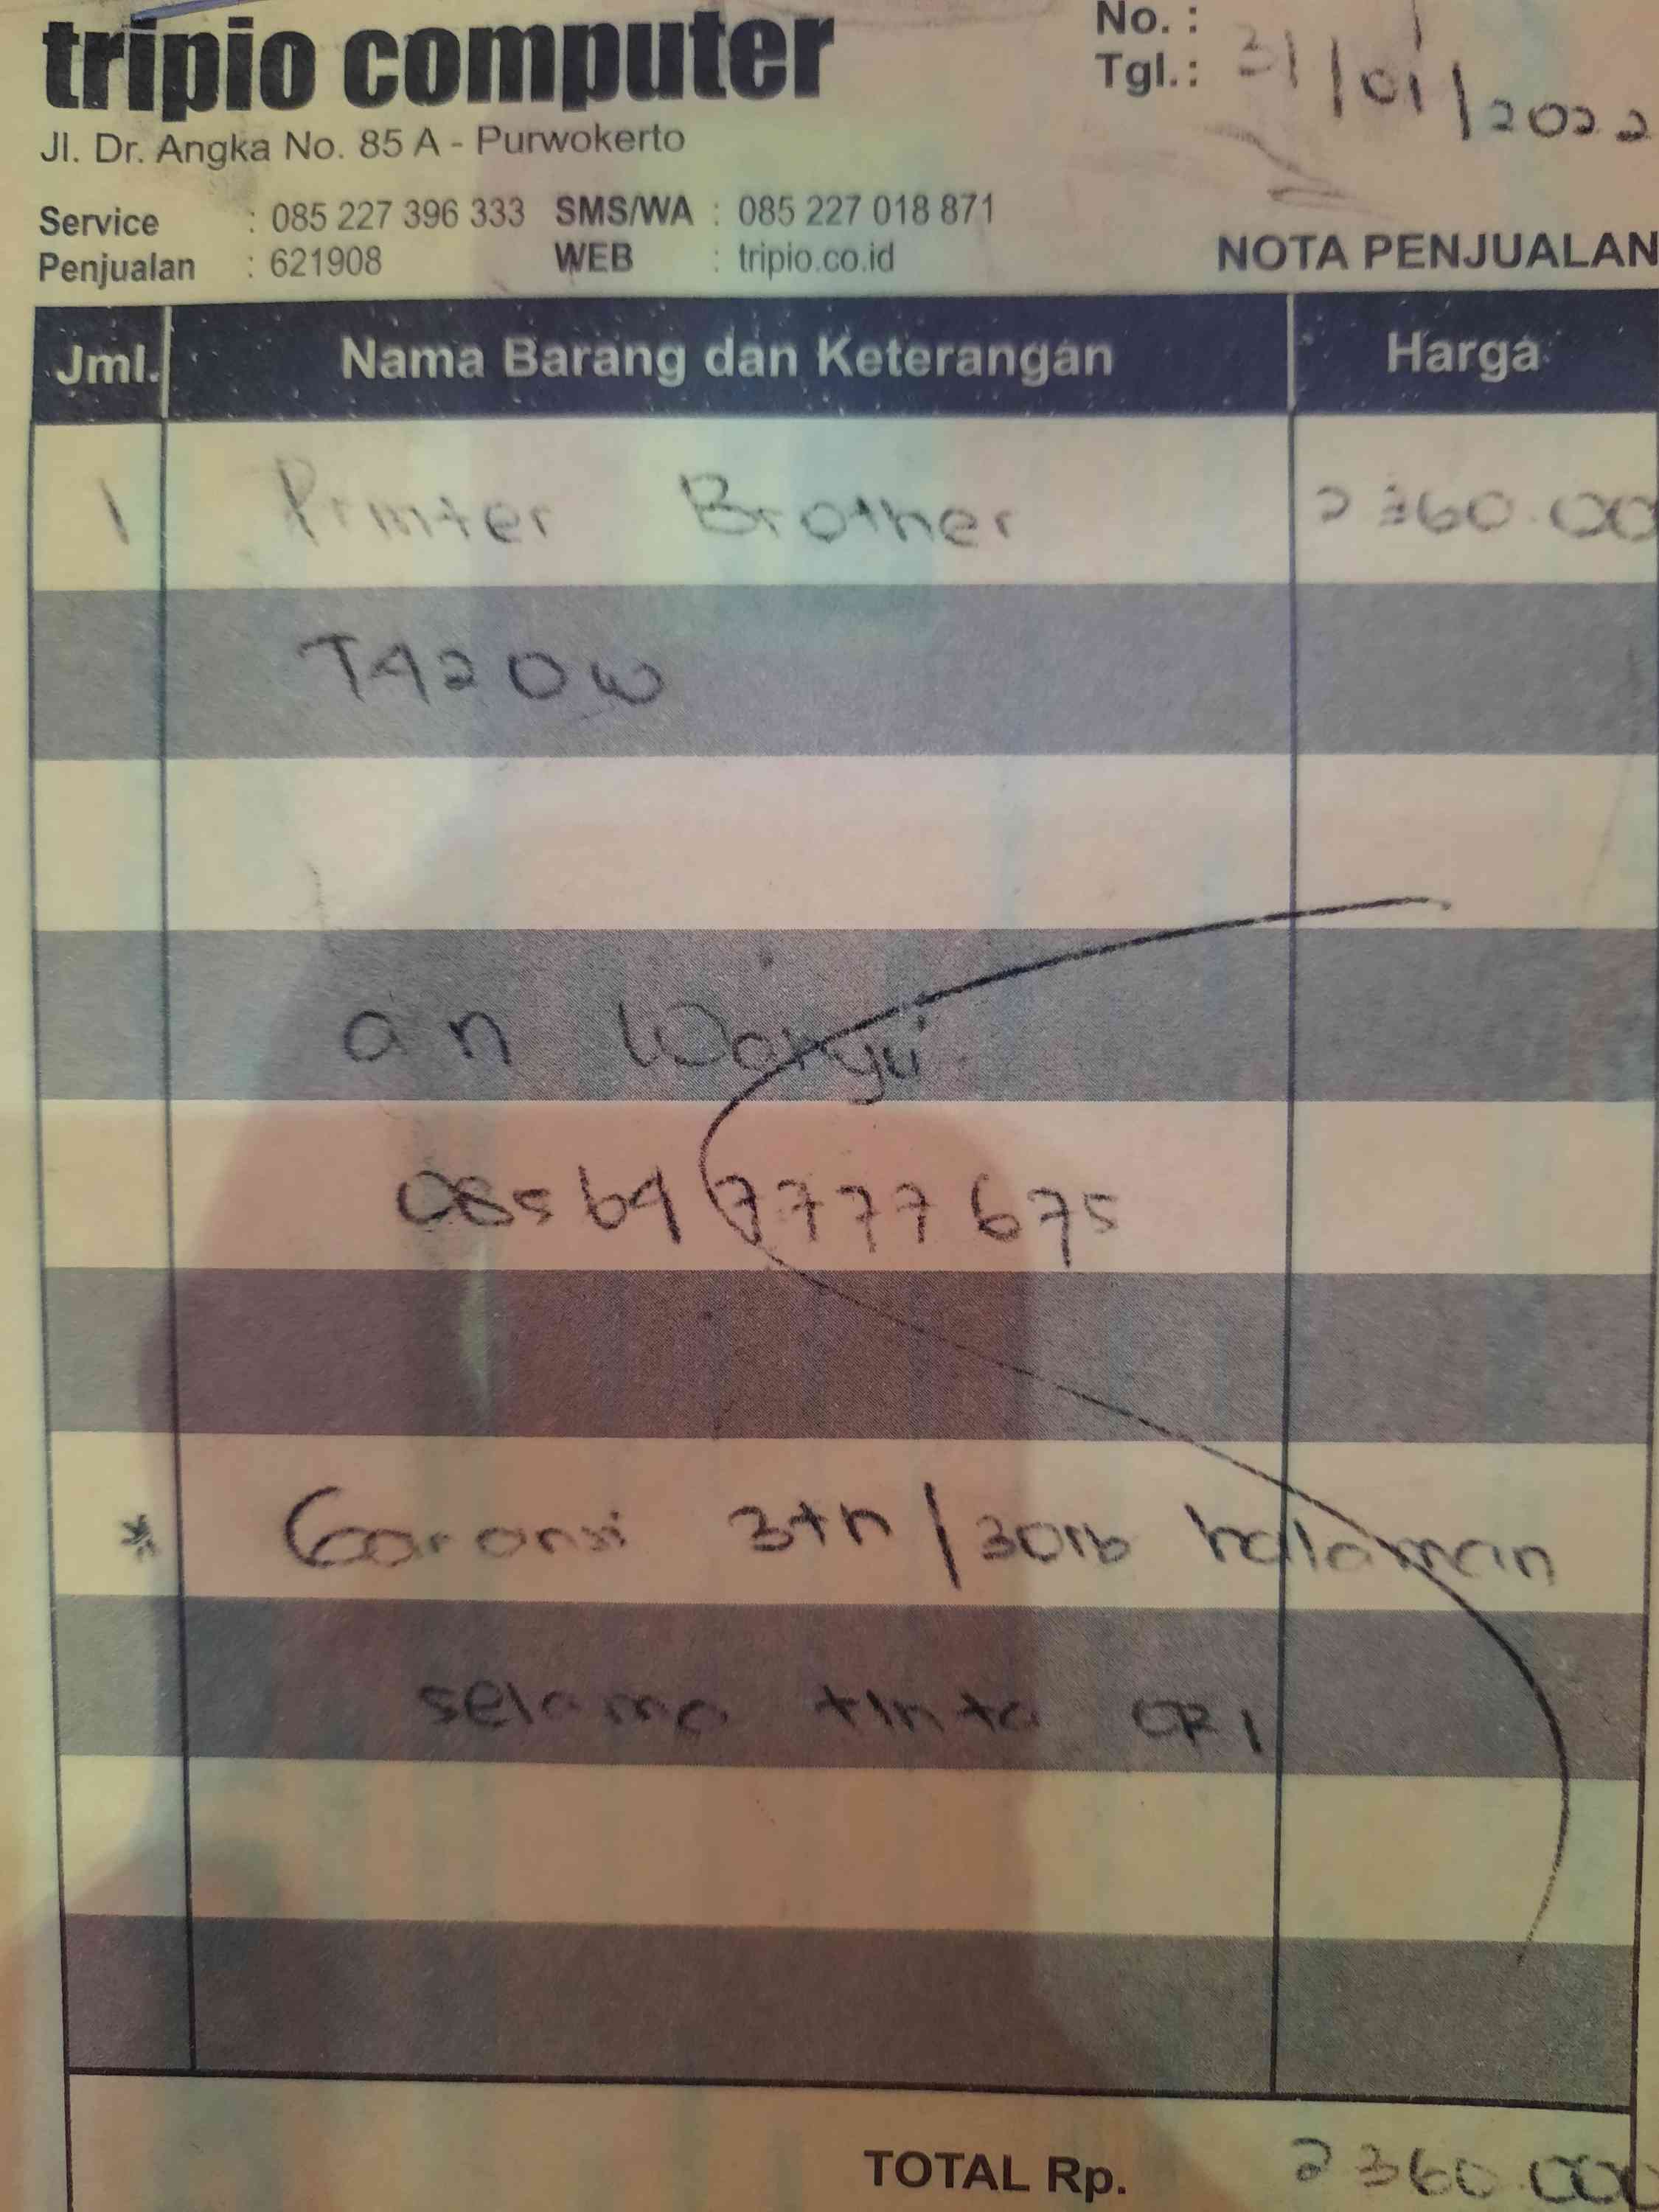 tripio computer
No. :
Tgl.: 31/01/2022
Jl. Dr. Angka No. 85 A - Purwokerto
Service : 085 227 396 333 SMS/WA : 085 227 018 871
Penjualan : 621908 WEB : tripio.co.id
NOTA PENJUALAN
Jml. Nama Barang dan Keterangan Harga
1 Printer Brother 2360.00
T420W
an Wahyu
085647777675
* Garansi 3th/30rb halaman
selama tinta ORI
TOTAL Rp. 2360.000